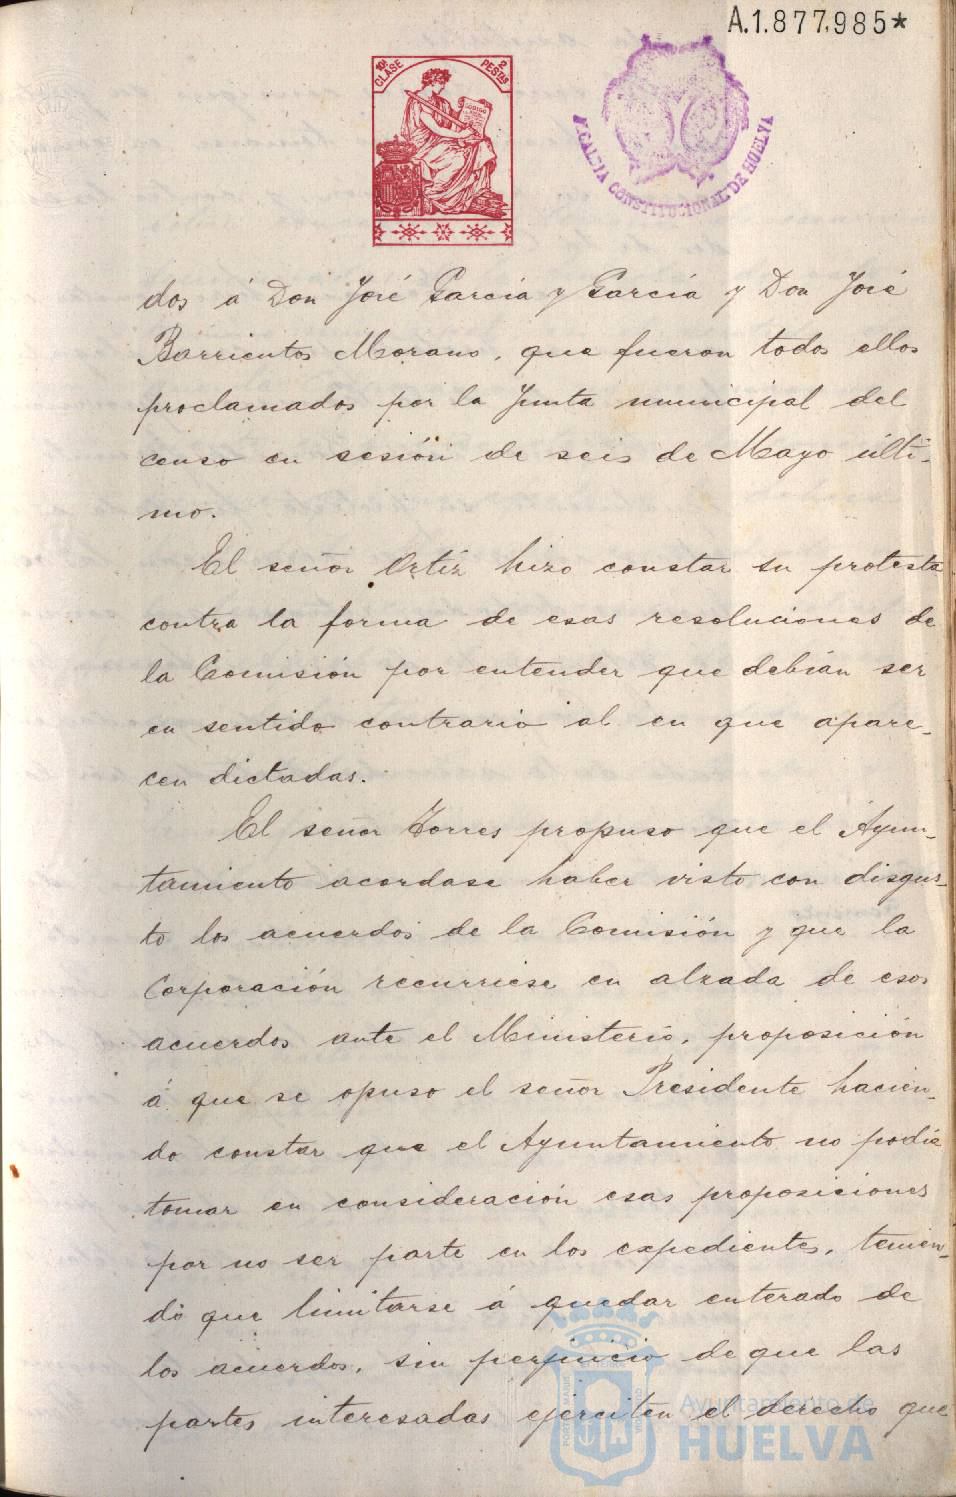 A.1.877.985*
10ª CLASE
2 PESTAS
CODIGO
ALCALDIA CONSTITUCIONAL DE HUELVA
dos á Don José García y García y Don José
Barrientos Morano, que fueron todos ellos
proclamados por la Junta municipal del
censo en sesión de seis de Mayo últi-
mo.
El señor Ortíz hizo constar su protesta
contra la forma de esas resoluciones de
la Comisión por entender que debían ser
en sentido contrario al en que apare-
cen dictadas.
El señor Torres propuso que el Ayun-
tamiento acordase haber visto con disgus-
to los acuerdos de la Comisión y que la
Corporación recurriese en alzada de esos
acuerdos ante el Ministerio, proposición
á que se opuso el señor Presidente hacien-
do constar que el Ayuntamiento no podía
tomar en consideración esas proposiciones
por no ser parte en los expedientes, tenien-
do que limitarse á quedar enterado de
los acuerdos, sin perjuicio de que las
partes interesadas ejerciten el derecho que
Ayuntamiento de
HUELVA